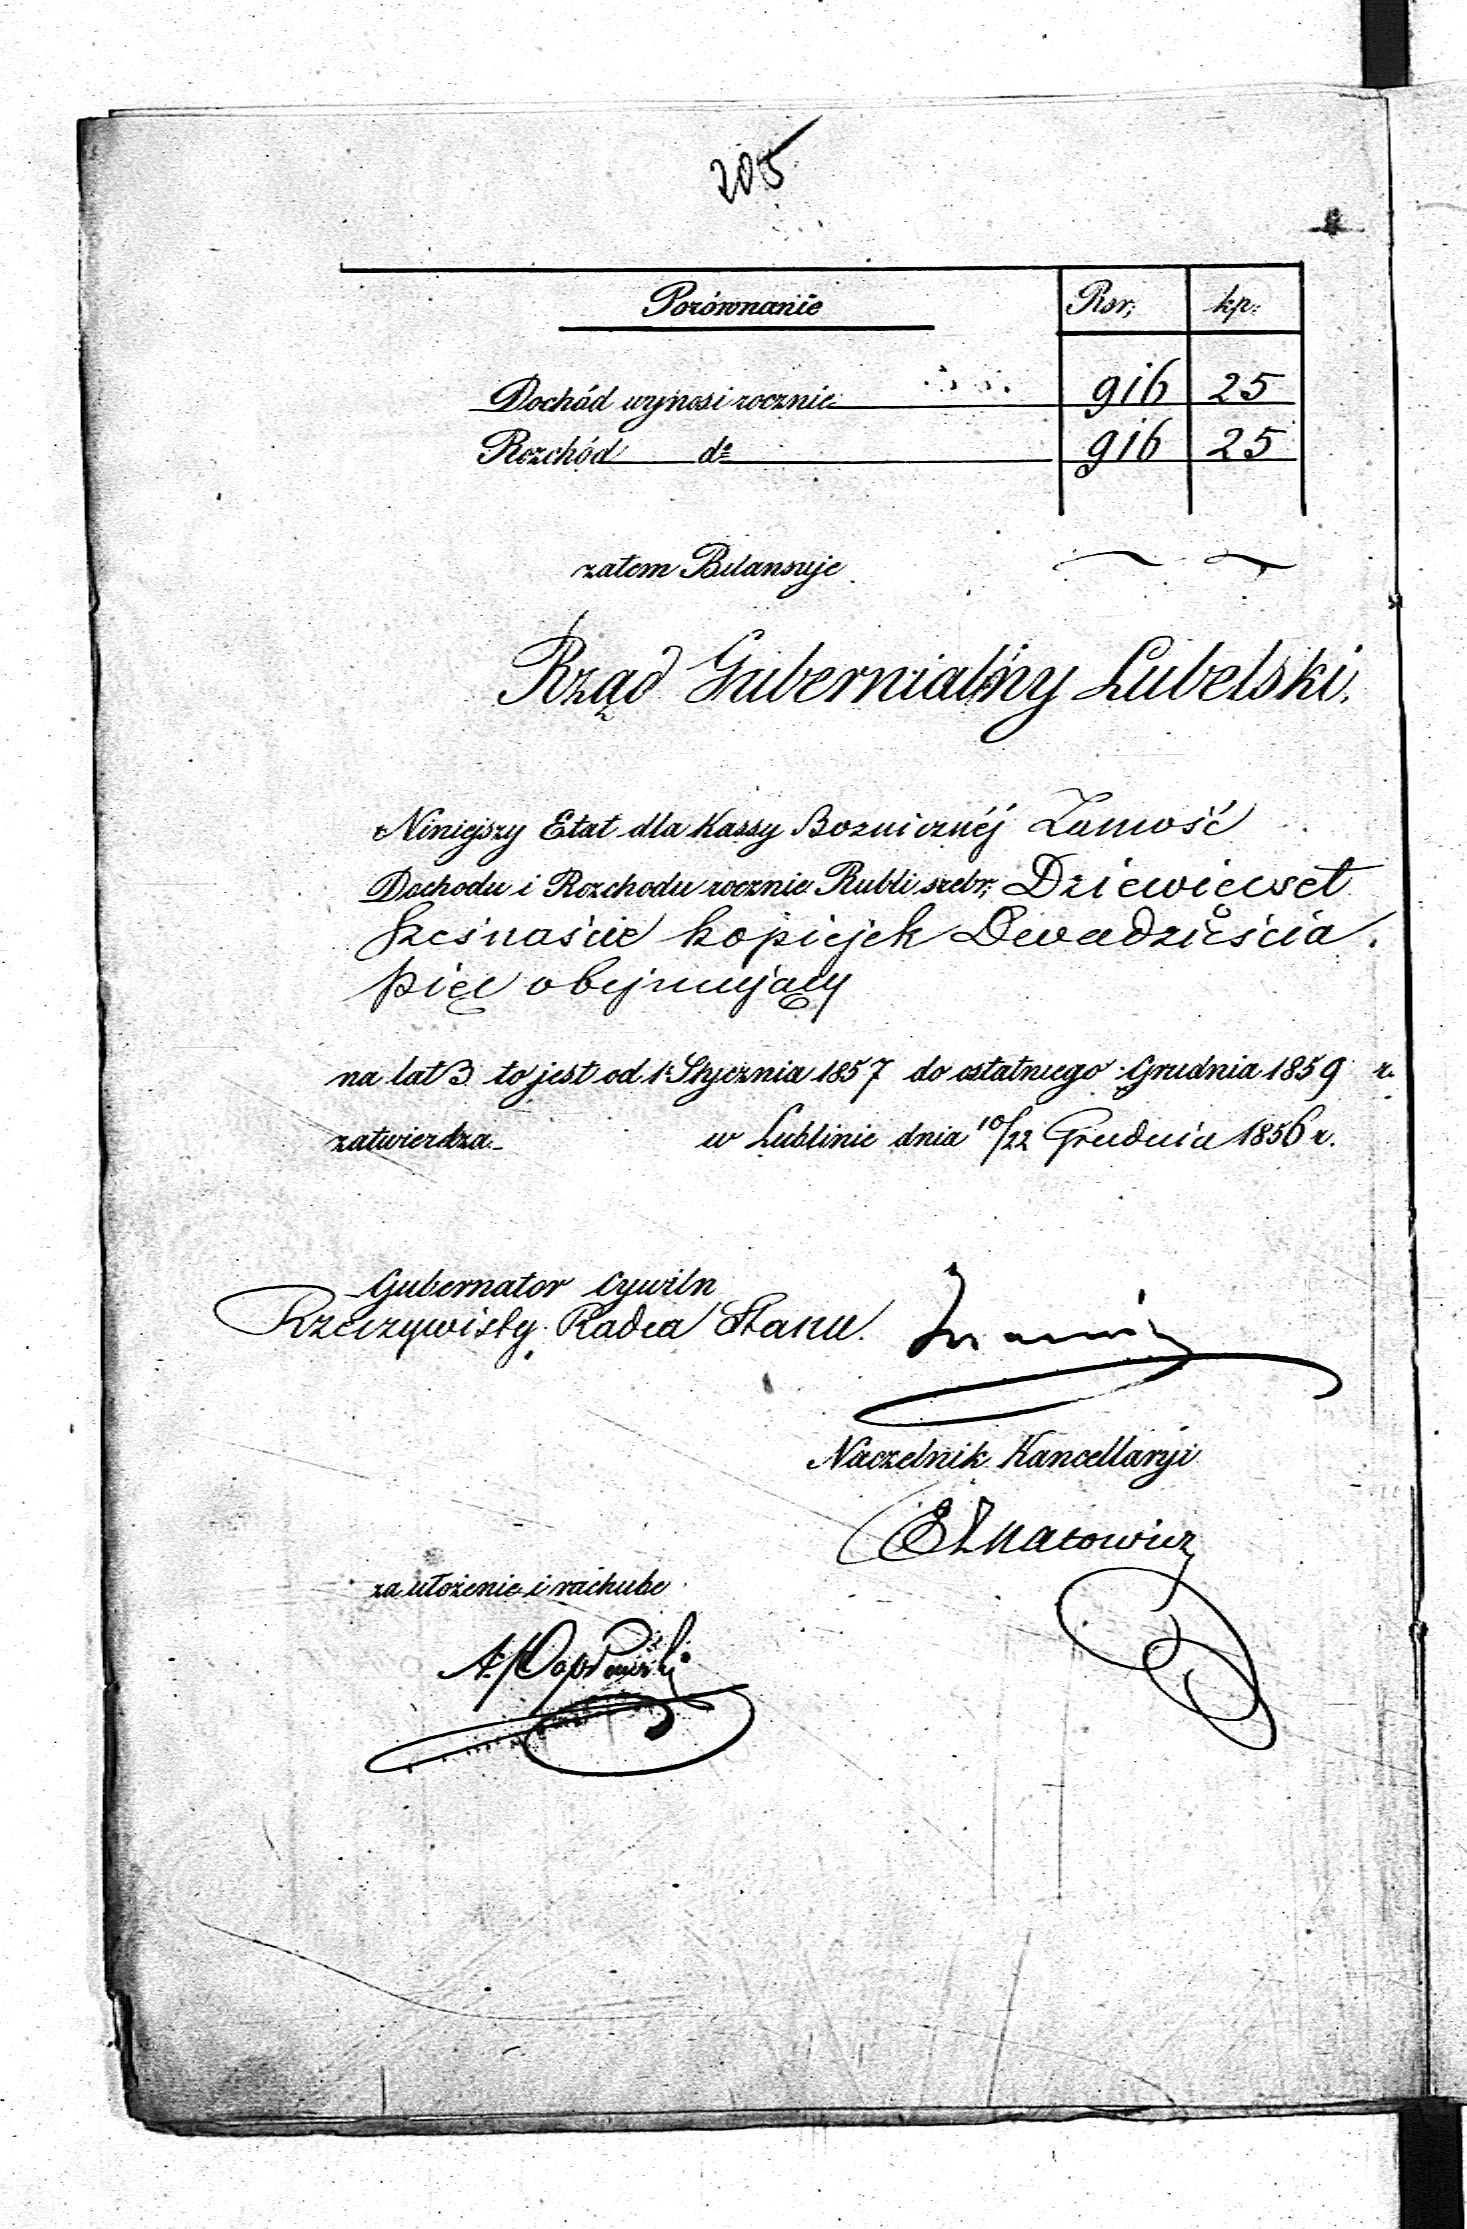 205
Porównanie Rsr, kp:
Dochód wynosi rocznie 916 25
Rozchód do 916 25
zatem Bilansuje
Rząd Gubernialny Lubelski.
Niniejszy Etat dla Kassy Boźnicznéj Zamość
Dochodu i Rozchodu rocznie Rubli srebr, Dziewięćset
Szesnaście kopiejek Dwadzieścia
pięć obejmujący
na lat 3 to jest od 1 Stycznia 1857 do ostatniego Grudnia 1859 r.
zatwierdza w Lublinie dnia 10/22 Grudnia 1856 r.
Gubernator Cywiln
Rzeczywisty Radca Stanu.
Naczelnik Kancellaryi
za ułożenie i rachubę